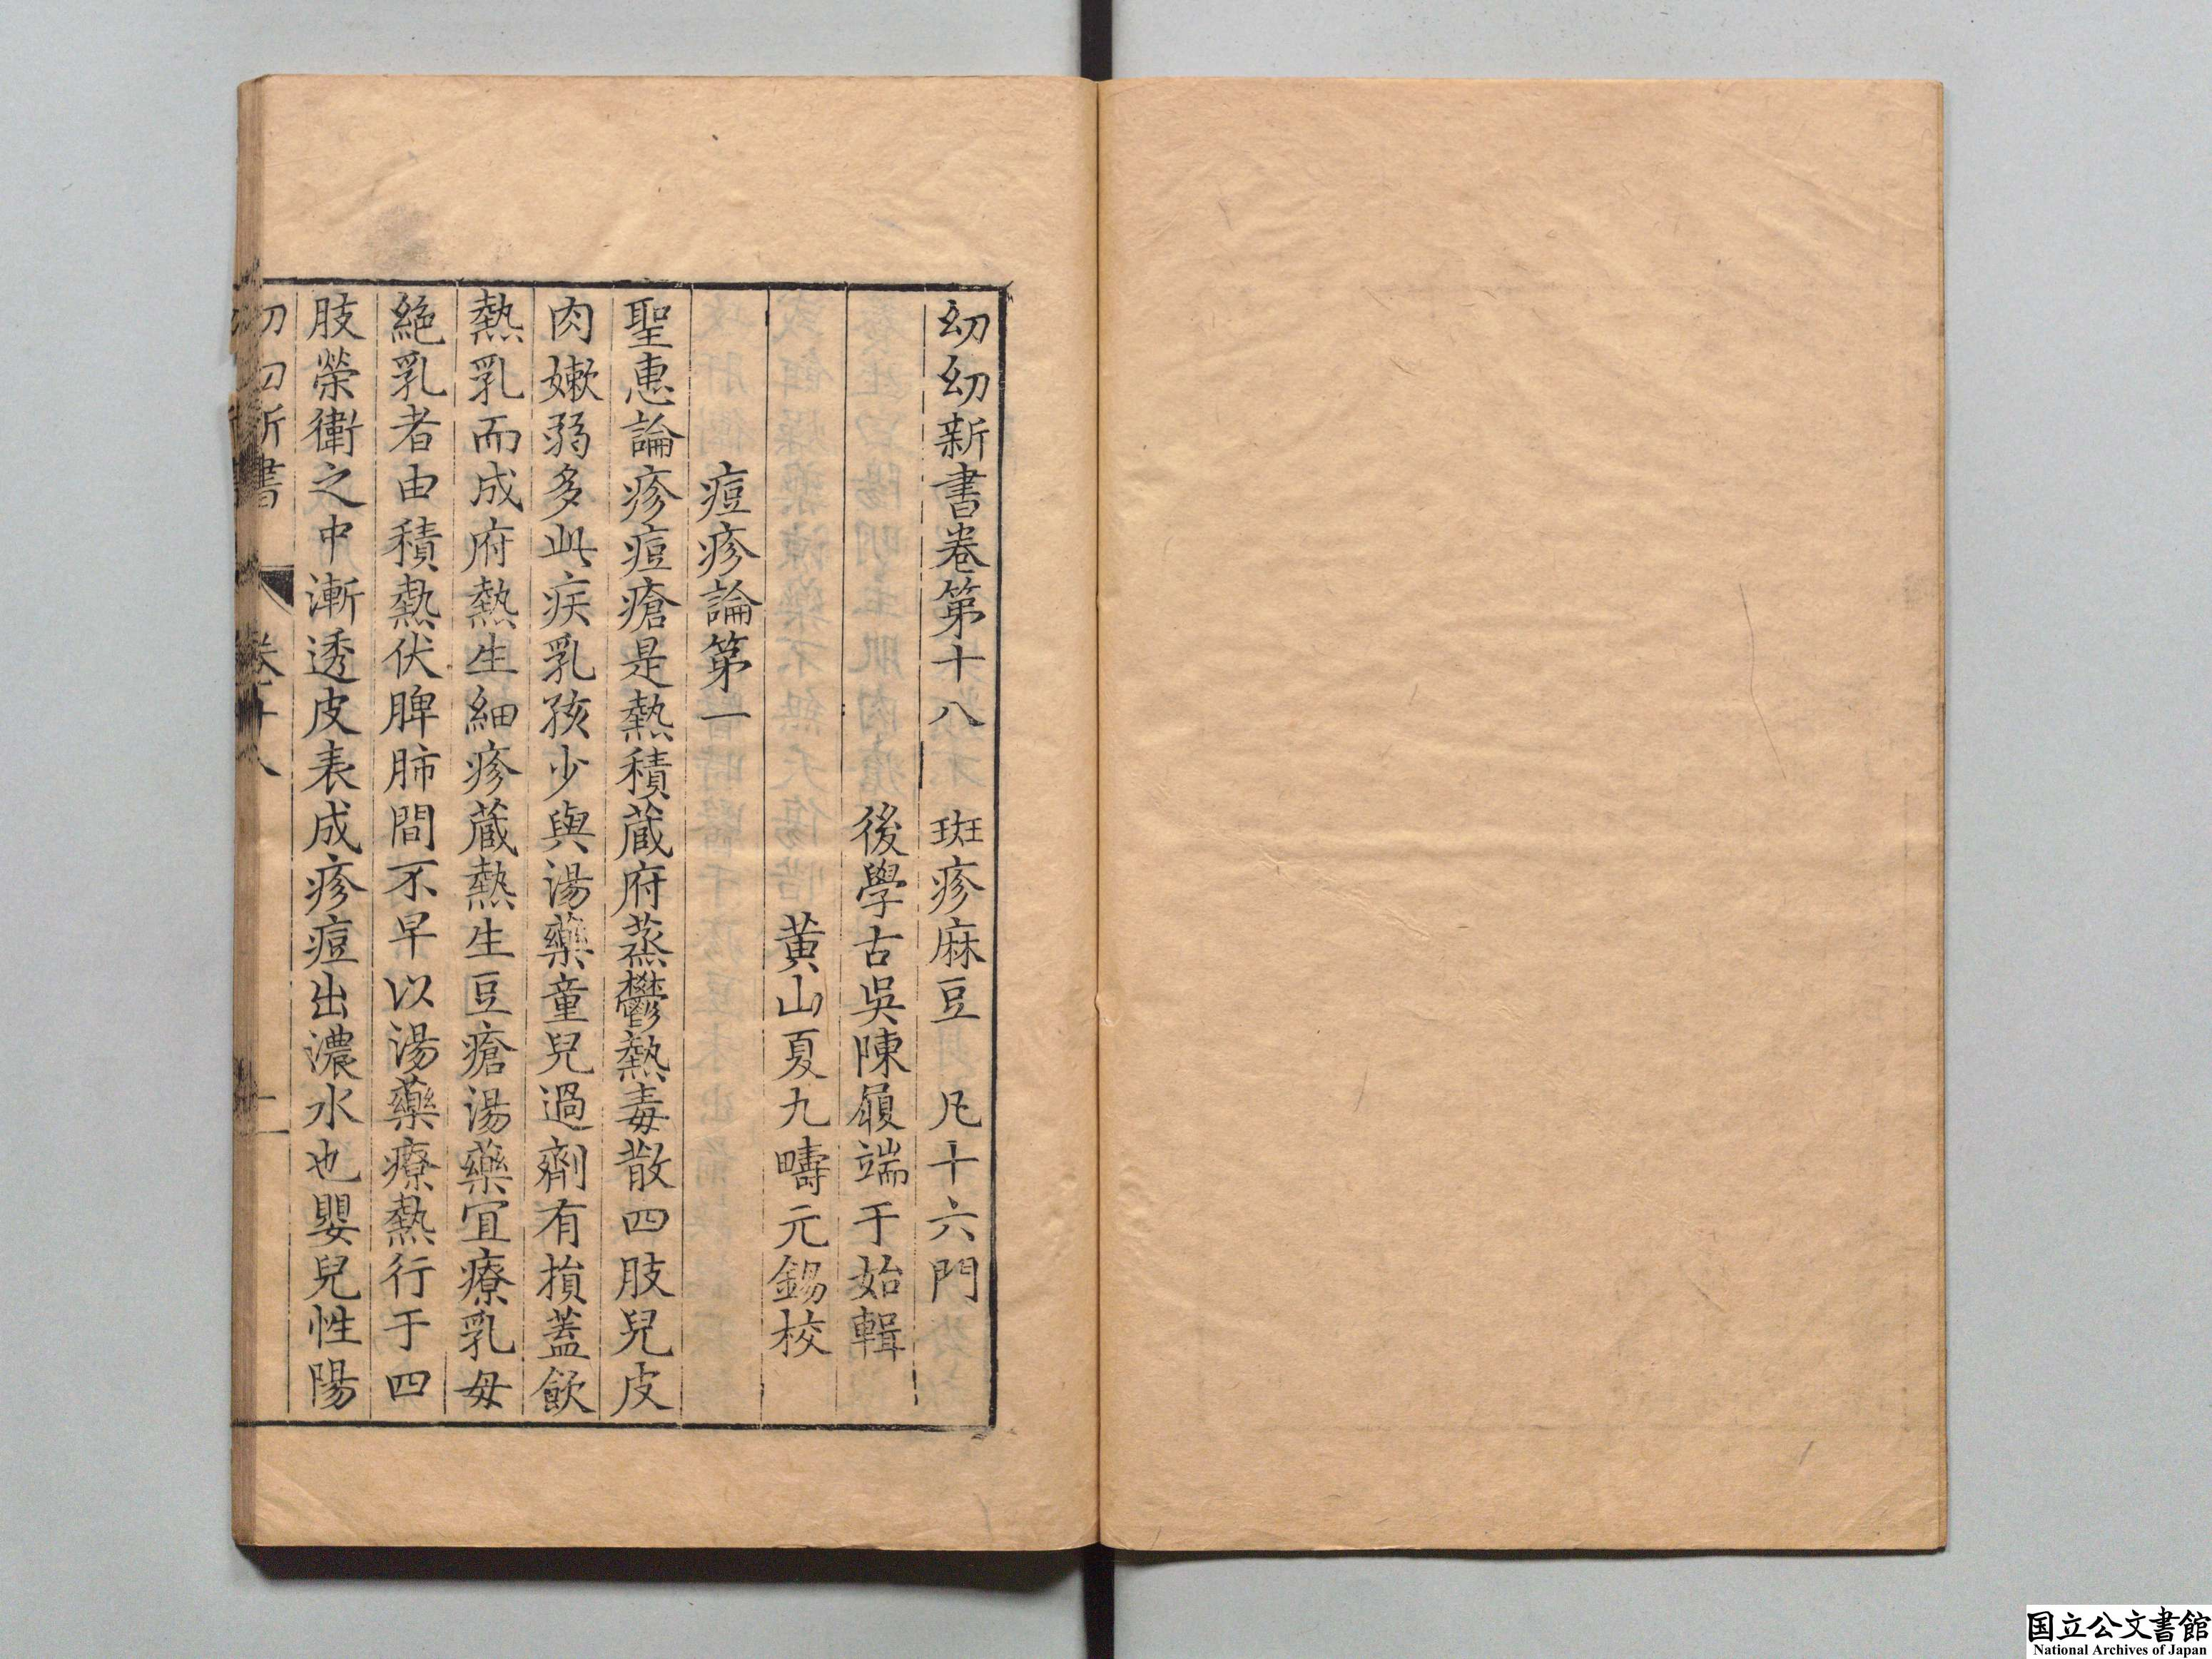 幼幼新書卷第十八　斑疹麻豆　凡十六門
後學古吳陳履端于始輯
黃山夏九疇元錫校
痘疹論第一
聖惠論疹痘瘡是熱積蔵府蒸鬱熱毒散四肢兒皮
肉嫰弱多此疾乳孩少與湯藥童兒過劑有損蓋飲
熱乳而成府熱生細疹蔵熱生豆瘡湯藥宜療乳母
絕乳者由積熱伏脾肺間不早以湯藥療熱行于四
肢榮衛之中漸透皮表成疹痘出濃水也嬰兒性陽
幼幼新書　卷十八　一
国立公文書館
National Archives of Japan